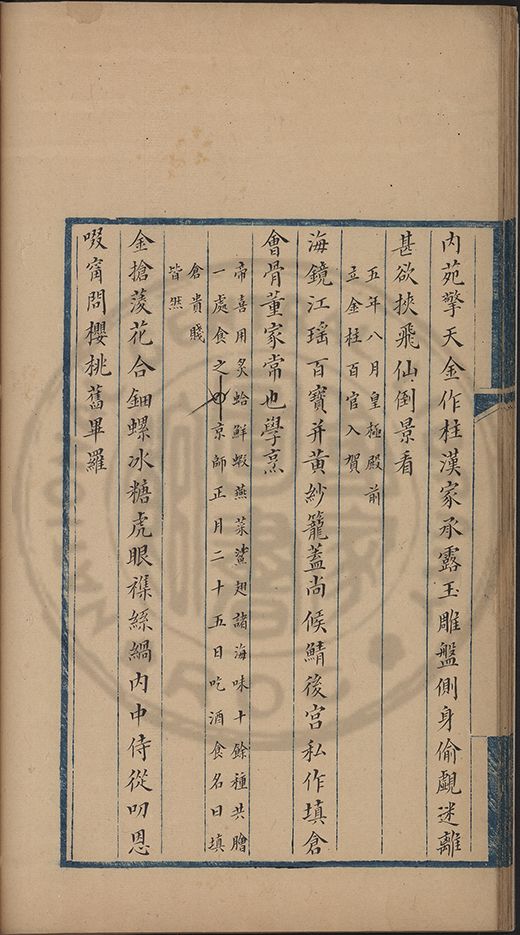 內苑擎天金作柱漢家承露玉雕盤側身偷覷迷離
甚欲挾飛仙倒景看
五年八月皇極殿前
立金柱百官入賀
海鏡江瑤百寶并黃紗籠蓋尚候鯖後宮私作填倉
會骨董家常也學烹
帝喜用炙蛤鮮蝦燕菜鯊翅諸海味十餘種共膾
一處食之京師正月二十五日吃酒食名曰填
倉貴賤
皆然
金搶蔆花合鈿螺冰糖虎眼糉絲緺內中侍從叨恩
啜甯問櫻桃舊畢羅